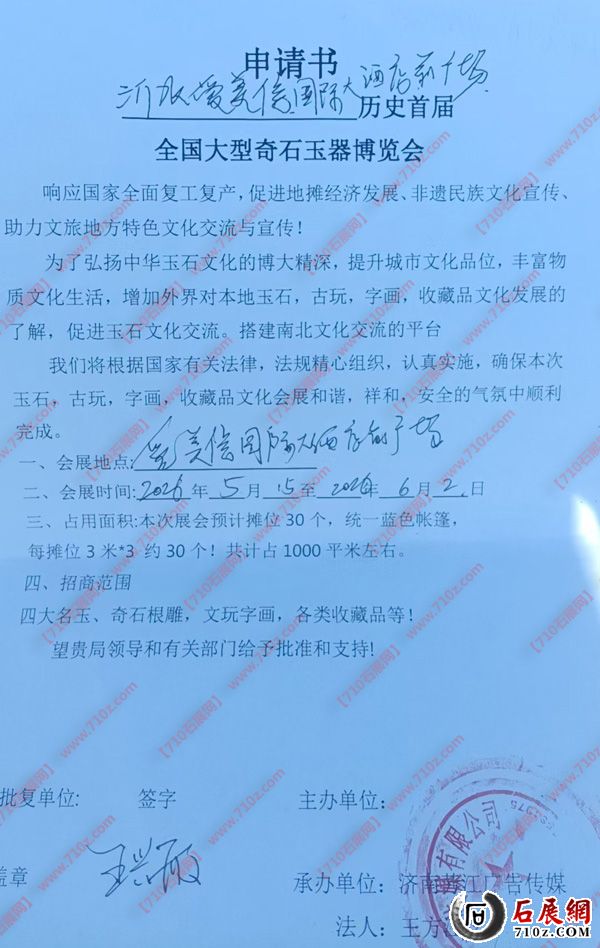 申请书
沂水爱美信国际大酒店前广场 历史首届
全国大型奇石玉器博览会
响应国家全面复工复产，促进地摊经济发展、非遗民族文化宣传、
助力文旅地方特色文化交流与宣传！
为了弘扬中华玉石文化的博大精深，提升城市文化品位，丰富物
质文化生活，增加外界对本地玉石，古玩，字画，收藏品文化发展的
了解，促进玉石文化交流。搭建南北文化交流的平台
我们将根据国家有关法律，法规精心组织，认真实施，确保本次
玉石，古玩，字画，收藏品文化会展和谐，祥和，安全的气氛中顺利
完成。
一、会展地点:爱美信国际大酒店前广场
二、会展时间:2026年5月15至2026年6月2日
三、占用面积:本次展会预计摊位30个，统一蓝色帐篷，
每摊位3米*3 约30个！共计占1000平米左右。
四、招商范围
四大名玉、奇石根雕，文玩字画，各类收藏品等！
望贵局领导和有关部门给予批准和支持!
批复单位: 签字 主办单位:
盖章 承办单位:济南 江广告传媒
有限公司
法人：王方
【710石展网】www.710z.com
石展網
710z.com